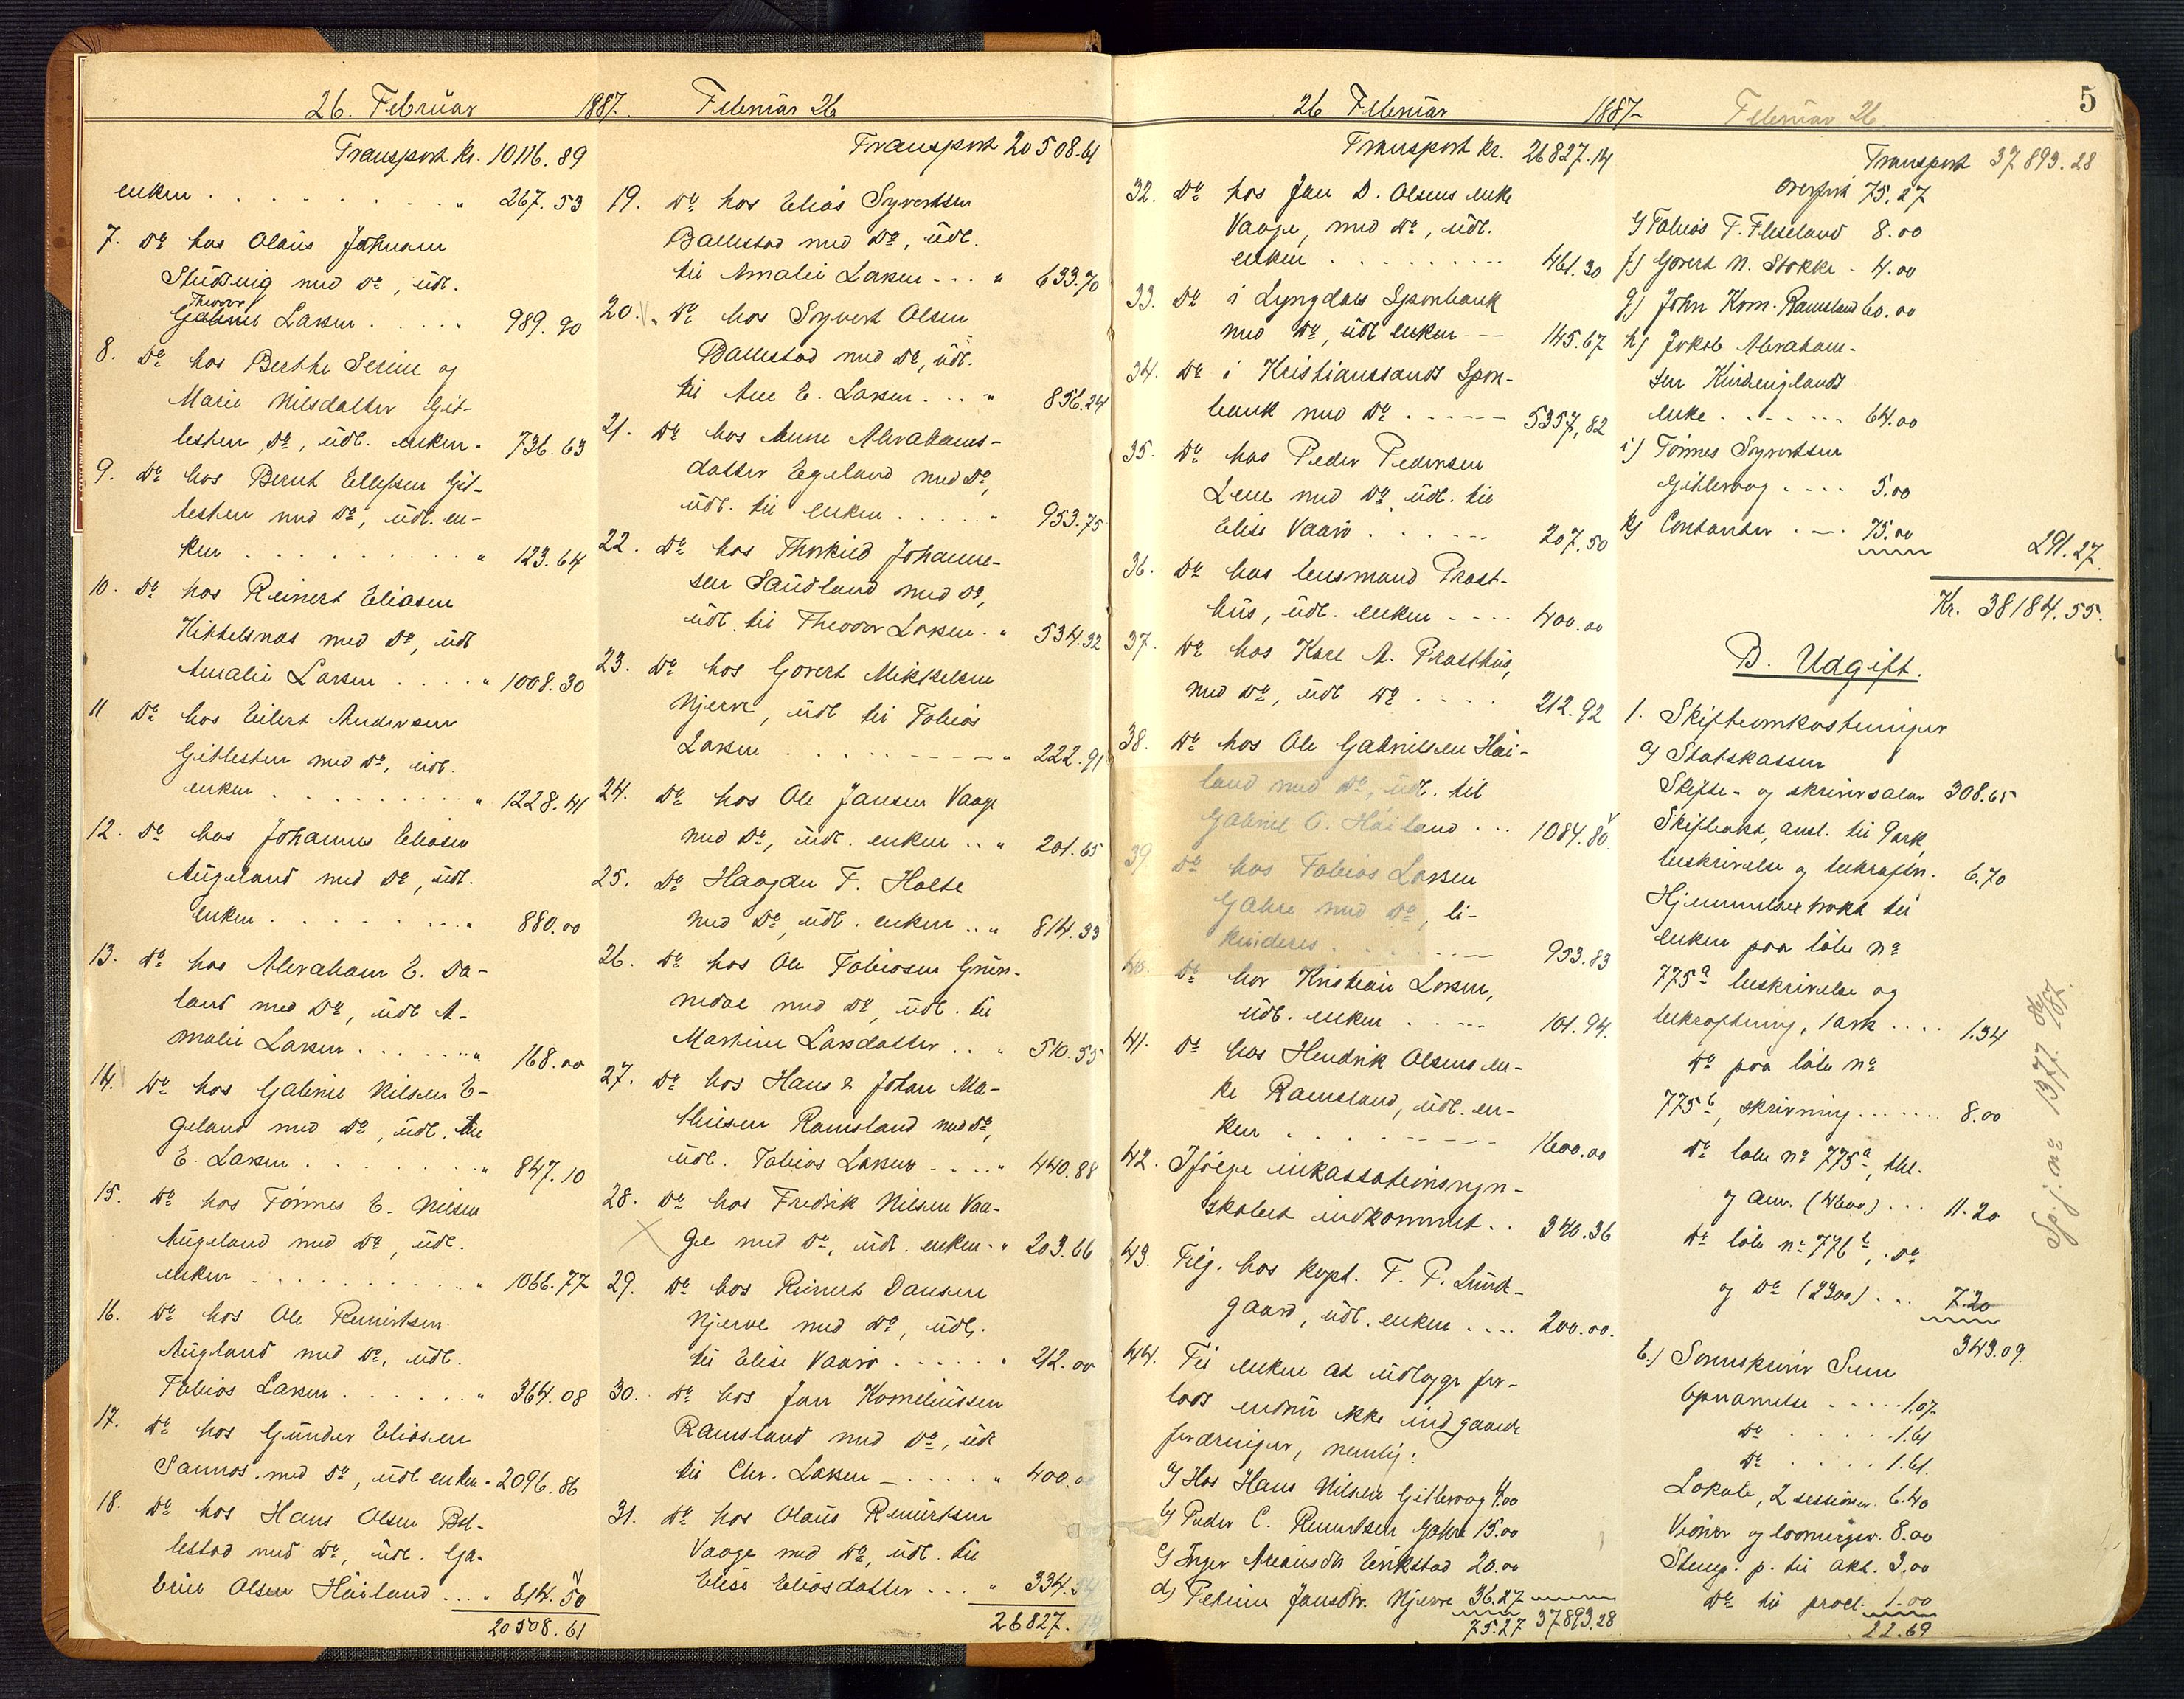 26. Februar 1887.
Transport Kr. 10116.89
enken . . . . . . . . . . " 267.53
7. Do hos Olaus Johnsen
med Do, udl.
Theodor
Gabriel Larsen . . . . " 989.90
8. Do hos Berthe Serine og
Marie Nilsdatter Git-
lesten, Do, udl. enken " 736.63
9. Do hos Bernt Ellefsen Git-
lesten med Do, udl. en-
ken . . . . . . . . . . " 123.64
10. Do hos Reinert Eliasen
Kittelsnæs med Do, udl
Amalie Larsen . . . . " 1008.30
11 Do hos Eilert Andersen
Gitlesten med Do, udl.
enken . . . . . . . . . " 1228.41
12. Do hos Johannes Eliasen
Augeland med Do, udl.
enken . . . . . . . . " 880.00
13. Do hos Abraham E. Da-
land med Do, udl A-
malie Larsen . . . . . . " 168.00
14. Do hos Gabriel Nilsen E-
geland med Do, udl. Ane
E. Larsen . . . . . . . " 847.10
15. Do hos Tønnes E. Nilsen
Augeland med Do, udl.
enken . . . . . . . . . " 1066.77
16. Do hos Ole Reinertsen
Augland med Do, udl.
Tobias Larsen . . . . . " 364.08
17. Do hos Gunder Eliasen
Sannæs med Do, udl enken " 2096.86
18. Do hos Hans Olsen Bal-
lestad med Do, udl. Ga-
briel Olsen Håiland . . . . " 614.50
20508.61
Februar 26
Transport 20508.61
19. Do hos Elias Syvertsen
Ballestad med Do, udl.
til Amalie Larsen - - - " 633.70
20. " Do hos Syvert Olsen
Ballestad med Do, udl.
til Ane E. Larsen . . . " 856.24
21. Do hos Anne Abrahams-
datter Egeland med Do,
udl. til enken . . . . . " 953.75
22. Do hos Thorkild Johanne-
sen Saudland med Do,
udl. til Theodor Larsen . " 534.32
23. Do hos Govert Mikkelsen
Njerve, udl til Tobias
Larsen . . . . . . - - - " 222.91
24. Do hos Ole Jansen Vaage
med Do, udl. enken . . " 201.65
25. Do Haagen T. Holte
med Do, udl. enken . . " 814.33
26. Do hos Ole Tobiasen Grun-
nedal med Do, udl. til
Martine Larsdatter . . " 510.55
27. Do hos Hans & Johan Ma-
thiesen Ramsland med Do,
udl. Tobias Larsen - . . . " 440.88
28. Do hos Fredrik Nilsen Vaa-
ge med Do, udl. enken - " 203.66
29. Do hos Reinert Dansen
Njerve med Do, udl.
til Elise Vaarø . . . . . " 212.00
30. Do hos Jan Korneliussen
Ramsland med Do, udl
til Chr. Larsen - . . . . " 400.00
31. Do hos Olaus Reinertsen
Vaage med Do, udl. til
Elise Eliasdatter . . . " 334.54
26827.14
26 Februar 1887
Transport Kr. 26827.14
32. Do hos Jan D. Olsens enke
Vaage, med Do, udl.
enken . . . . . . . . . 461.30
33. Do i Lyngdals Sparebank
med Do, udl enken - - - 145.67
34. Do i Kristianssands Spare-
bank med Do . - - - - 5357,82
35. Do hos Peder Pedersen
Lene med Do, udl. til
Elise Vaarø . . . . . . 207.50
36. Do hos lensmand Prest-
hus, udl. enken - - - - 400.00
37. Do hos Karl A. Præsthus,
med Do, udl Do . . . . 212.92
38. Do hos Ole Gabrielsen Håi-
land med Do, udl. til
Gabriel O. Håiland . . . 1084.80
39 Do hos Tobias Larsen
Gahre med Do, li-
kvideres . . . . . . - - 953.83
40. Do hos Kristian Larsen,
udl. enken . . - - - 101.94.
41. Do hos Hendrik Olsens en-
ke Ramsland, udl. en-
ken . . . . . . - - - - 1600.00
42. Ifølge inkassationsregn-
skabet indkommet . . 340.36
43. Tilg. hos kapt. T. P. Lund-
gaard, udl. enken . . . . 200.00.
44. Til enken at udlægge for-
lods endnu ikke indgaaede
fordringer, nemlig:
a) Hos Hans Nilsen Gitlevaag 4.00
b) Peder C. Reinertsen Gahre 15.00
c) Inger Eriksstad 20.00
d) Petrine Jansdtr. Njerve 36.27
75.27 37893.28
Februar 26. 5
Transport 37893.28
Overført 75.27
e) Tobias T. Fleseland 8.00
f) Govert N. Stokke - 4.00
g) John Korn. Ramsland 60.00
h) Jakob Abraham-
sen
enke . . - - - - 64.00
i) Tønnes Syvertsen
Gitlevaag . . . . 5.00
k) Contanter . - - . 75.00 291.27.
Kr. 38184.55.
B. Udgift.
1. Skifteomkostninger
a) Statskassen
Skifte- og skriversalær 308.65
Skifteakt, ansl. til 9 ark,
beskrivelse og bekræftn. 6.70
Hjemmelsextrakt til
enken paa løbe no
775a beskrivelse og
bekræftning, 1 ark . . . . 1.34
Do paa løbe no
775b, skrivning . . . . . . 8.00
Do løbe no 775a, thl.
og anv. (4600) . . . 11.20
Do løbe no 776b, Do
og Do (2300) . . . 7.20
343.09.
b.) Sorenskriver Sem
Opnævnelse . . . . . 1.07.
Do . . . . . . 1.61
Do . . . . . 1.61.
Lokale, 2 sessioner. 6.40
Vidner og 8.00
Stemp. p. til akt. 3,00
Do til procl. 1.00
22.69